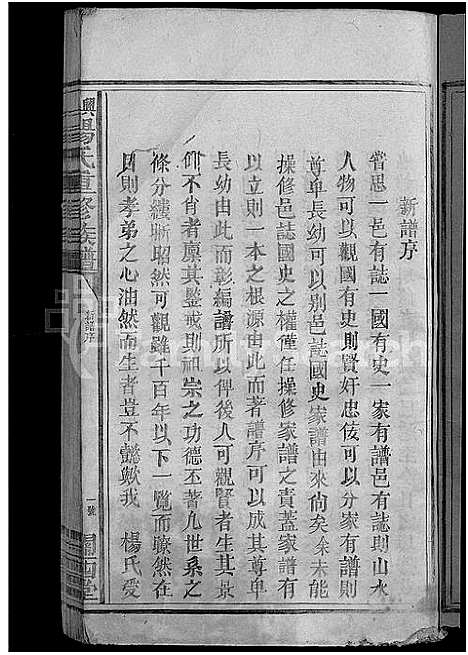 新譜序
嘗思一邑有誌一國有史一家有譜邑有誌則山水
人物可以觀國有史則賢奸忠佞可以分家有譜則
尊卑長幼可以别邑誌國史家譜由來尚矣余未能
操修邑誌國史之權僅任操修家譜之責蓋家譜有
以立則一本之根源由此而著譜序可以成其尊卑
長幼由此而彰編譜所以俾後人可觀賢者生其景
仰不肖者凜其鑒戒則祖宗之功德丕著凡世系之
條分縷晰昭然可觀雖千百年以下一覽而瞭然在
目則孝弟之心油然而生者豈不懿歟我 楊氏受
楊氏重修族譜
新譜序
一號